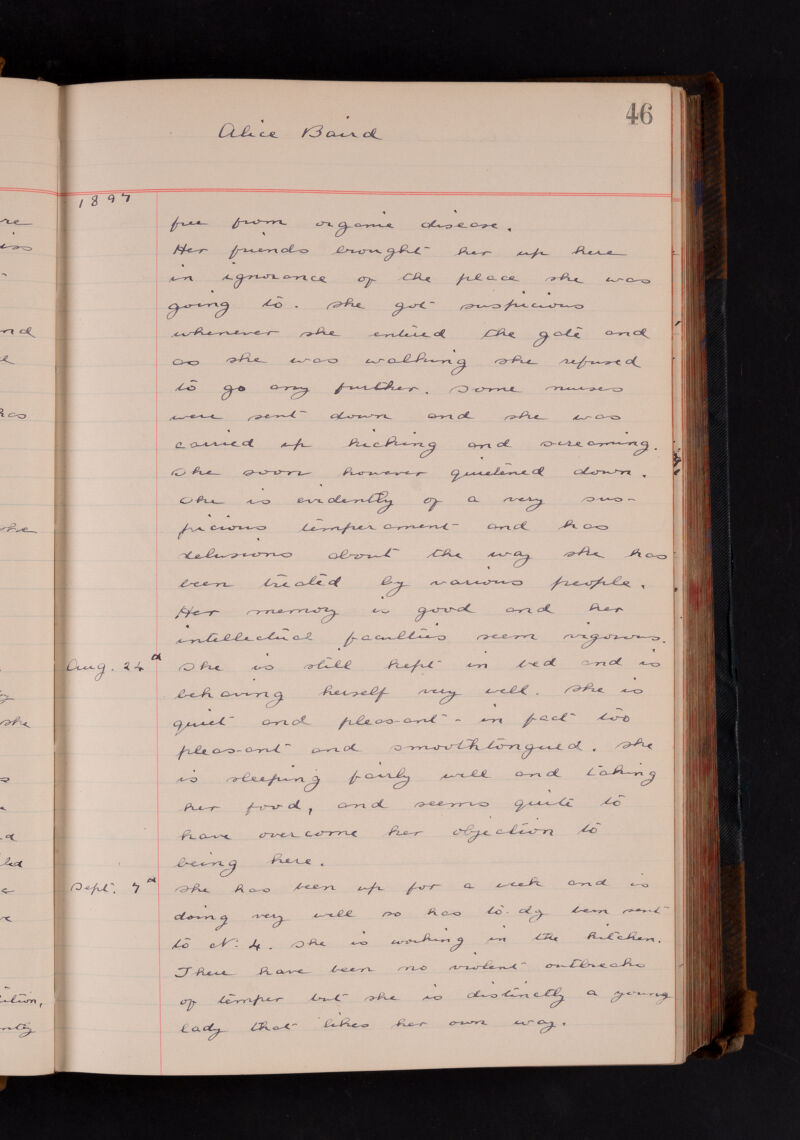 46
Alice Baird
1897
free from organic disease.
Her friends brought her up here
in ignorance of the place she was
going to. She got suspicious
whenever she entered the gate and
as she was walking she refused
to go any further. Some nurses
were sent down and she was
carried up kicking and screaming.
She soon however quietened down.
She is evidently of a very sus-
picious temperament and has
delusions about the way she has
been treated by various people.
Her memory is good and her
intellectual faculties seem vigorous.
Aug. 24th She is still kept in bed and is
behaving herself very well. She is
quiet and pleasant - in fact too
pleasant and smoothtongued. She
is sleeping fairly well and taking
her food, and seems quite to
have overcome her objection to
being here.
Sept. 7th She has been up for a week and is
doing very well so has to-dy been sent
to No. 4. She is working in the kitchen.
There have been no violent outbreaks
of temper but she is distinctly a young
lady that likes her own way.